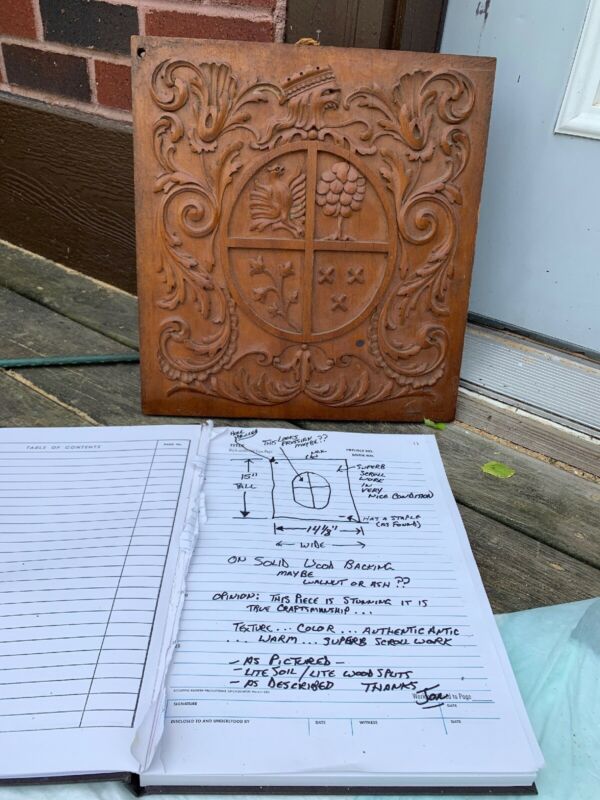 TABLE OF CONTENTS
PAGE NO.
HOLE
DRILLED
THIS LOOKS
PRUSSIAN
MAYBE??
TITLE
PROJECT NO.
BOOK NO.
11
15"
TALL
SUPERB
SCROLL
WORK
IN
VERY
NICE CONDITION
HAS A STAPLE
(AS FOUND)
14 1/8"
WIDE
ON SOLID WOOD BACKING
MAYBE
WALNUT OR ASH??
OPINION: THIS PIECE IS STUNNING IT IS
TRUE CRAFTSMANSHIP...
TEXTURE... COLOR... AUTHENTIC ANTIC
... WARM... SUPERB SCROLL WORK
- AS PICTURED -
- LITE SOIL/LITE WOOD SPLITS
- AS DESCRIBED THANKS
Jon
to Page
SIGNATURE
DATE
DISCLOSED TO AND UNDERSTOOD BY
DATE
WITNESS
DATE